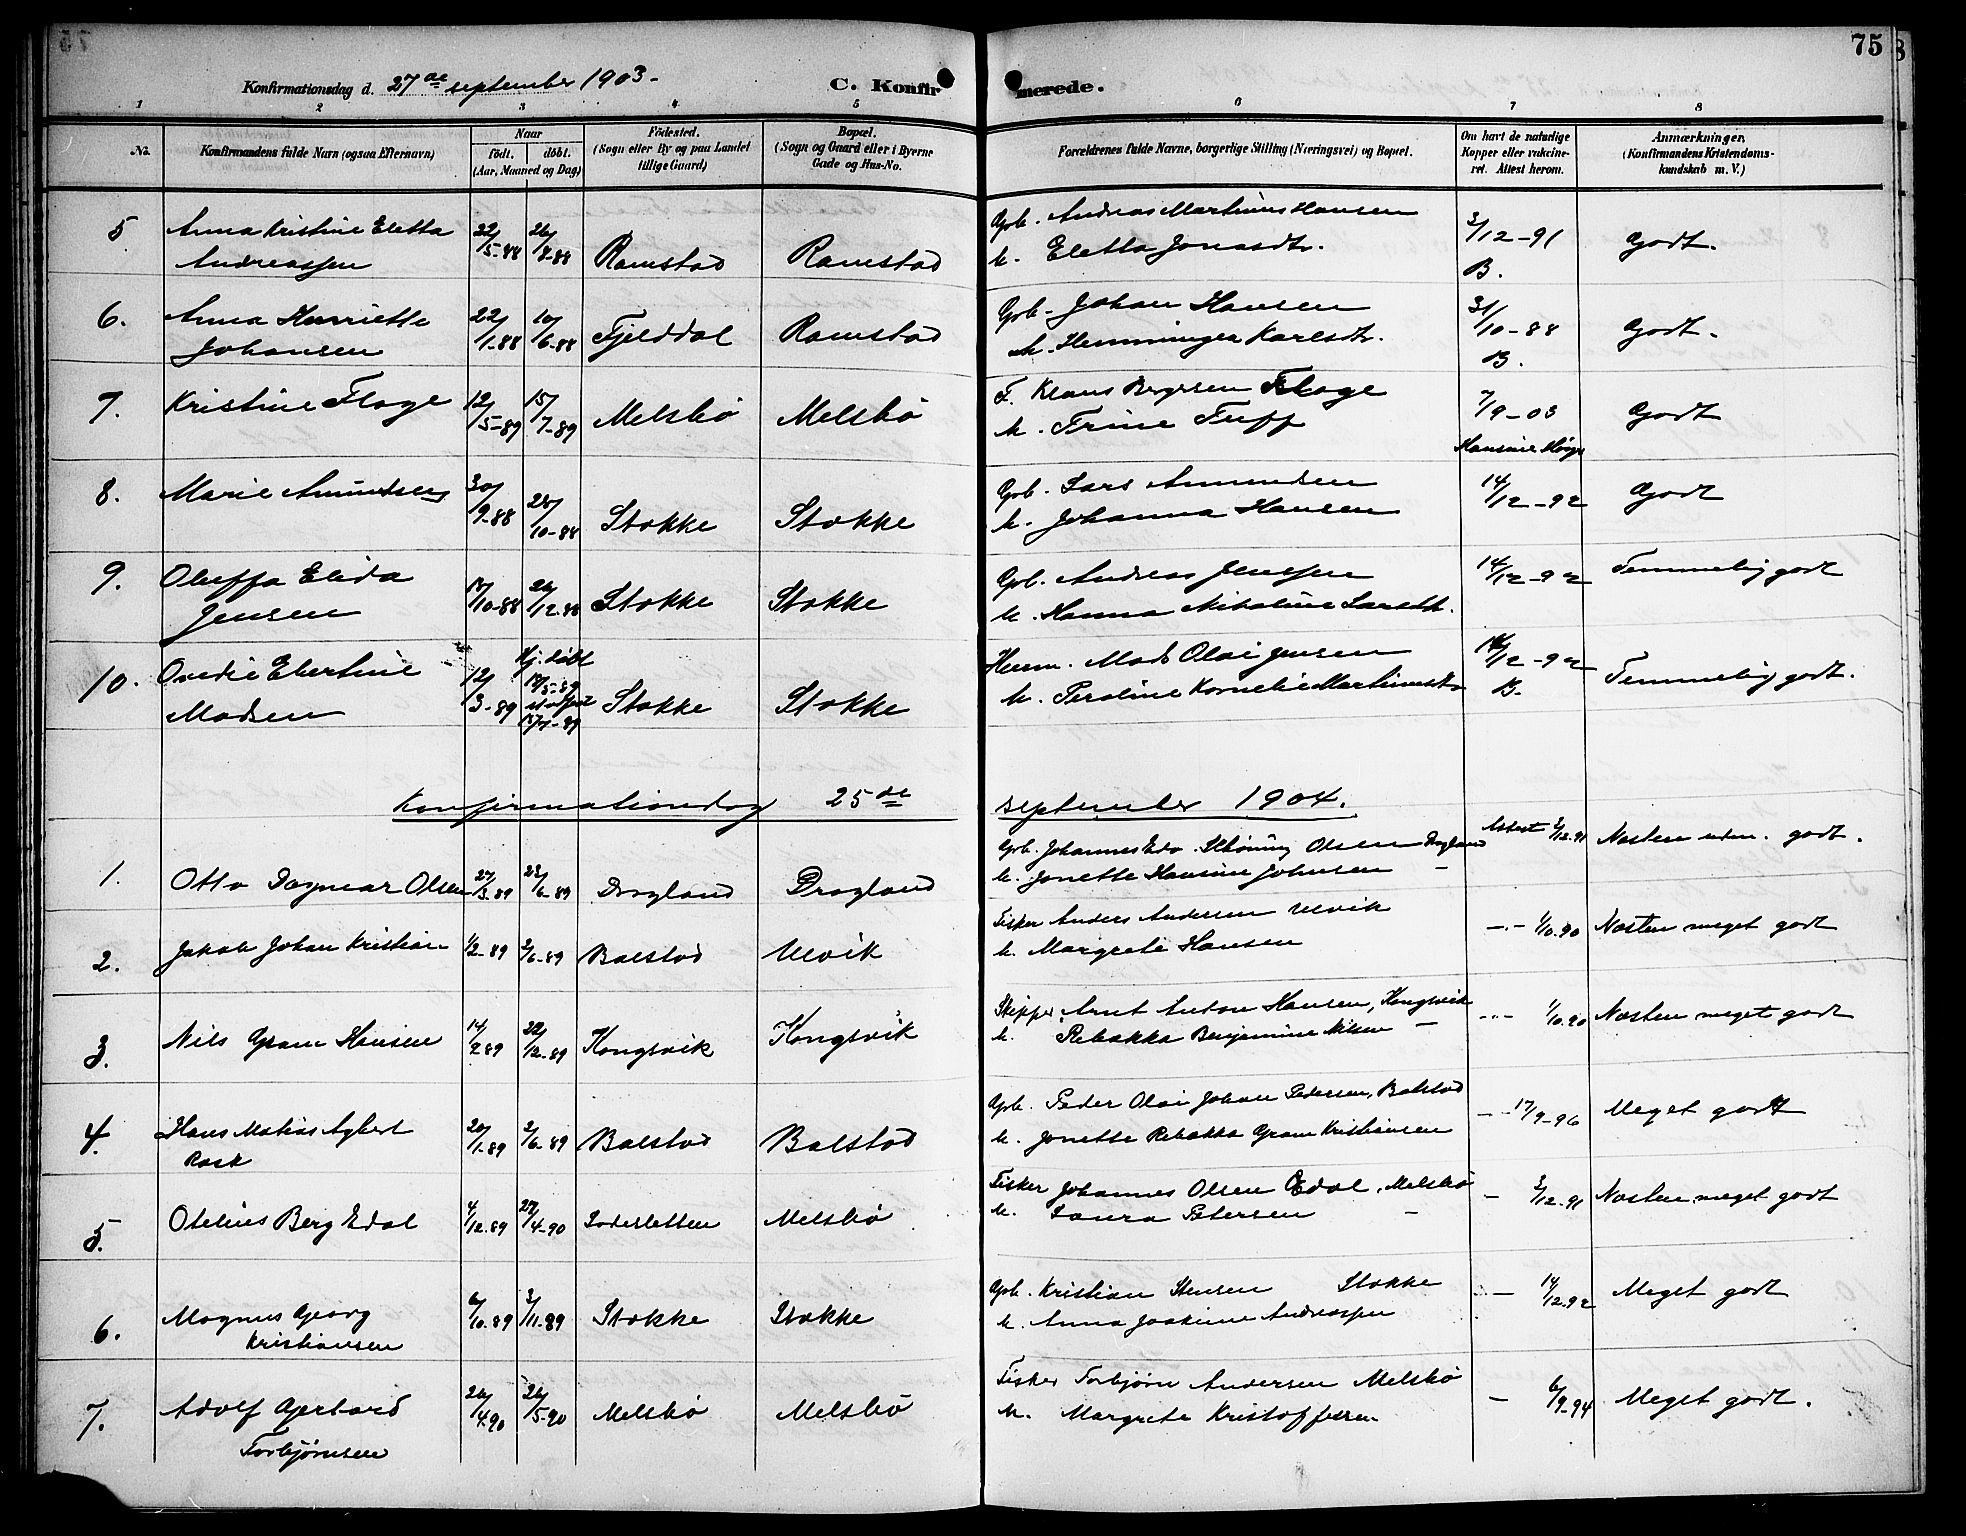 75
Konfirmationsdag d. 27de september 1903.
C. Konfirmerede.
1 2 3 4 5 6 7 8
No.
Konfirmandens fulde Navn (ogsaa Efternavn)
Naar
født. døbt.
(Aar, Maaned og Dag)
Fødested.
(Sogn eller By og paa Landet
tillige Gaard)
Bopæl.
(Sogn og Gaard eller i Byerne
Gade og Hus-No.
Forældrenes fulde Navne, borgerlige Stilling (Næringsvei) og Bopæl.
Om havt de naturlige
Kopper eller vakcine-
ret. Attest herom.
Anmærkninger,
(Konfirmandens Kristendoms-
kundskab m. V.)
5 Anna Kristine Eletta
Andreassen
22/5-88
Ramstad Ramstad
Gbr. Andreas Martinus Hansen
M. Eletta Jonasdtr.
3/12-91
B.
Godt.
6. Anna Henriette
Johansen
22/1-88 10/6-88 Fjelddal Ramstad
Gbr. Johan Hansen
M. Hemmingea Karlsdtr.
31/10-88
B.
Godt.
7. Kristine Flage 12/5-89 15/7-89 Melsbö Melsbö
F. Klaus Flage
M. Trine Tuff
7/9-03
Godt
8. Marie Amundsen
30/9-88 28/10-88 Stokke Stokke
Gbr. Lars Amundsen
M. Johanna Hansen
14/12-92 Godt
9. Oluffa Elida
Jensen
17/10-88 26/12-88 Stokke Stokke
Gbr. Andreas Jenssen
M. Hanna Nikoline Larsdtr.
14/12-92 Temmelig godt
10. Ovedie Ebertine
Madsen
12/3-89
Hj. døbt
17/5-89
17/7-89
Stokke Stokke
Husm. Mads Olai Jensen
M. Peroline Kornelie Martinusdtr
14/12-92
B.
Temmelig godt.
Konfirmationsdag 25de september 1904.
1. Otto Dagmar Olsen 27/3-89 23/6-89 Dragland Dragland
Gbr. Johannes Edv. Olsen Dragland
M. Jonette Hansine Johnsen -
Attest 3/12.91 Næsten uden. godt.
2. Jakob Johan Kristian 1/2-89 2/6-89 Balstad Ulvik
Fisker Anders Andersen Ulvik
M. Margrete Hansen
-.- 1/10.90 Næsten meget godt
3. Nils Gram Hansen 14/9 89 22/12-89 Kongsvik Kongsvik
Skipper Arnt Anton Hansen, Kongsvik
M. Rebakka Benjamine Nilsen -
-.- 1/10.90 Næsten meget godt
4. Hans Matias Agbert
Rask
20/1-89 2/6-89 Balstad Balstad
Gbr. Peder Olai Johan Pedersen, Balstad
M. Jonette Rebakka Gram Kristiansen
-- 17/9-96 Meget godt
5. Otelius Berg Edal 4/12.89 27/4-90 Melsbö
Fisker Johannes Olsen Edal, Melsbö
M. Laura Petersen -
- 3/12-91 Næsten meget godt
6. Magnus Georg
Kristiansen
6/10.89 3/11.89 Stokke Stokke
Gbr. Kristian Stensen Stokke
M. Anna Joakime Andreassen
- 14/12.92 Meget godt
7. Adolf Gerhard
Torbjørnsen
26/4.90 26/5-90 Melsbö Melsbö
Fisker Torbjørn Andersen Melsbö
M. Margrete Kristoffersen
- 6/9-94 Meget godt.